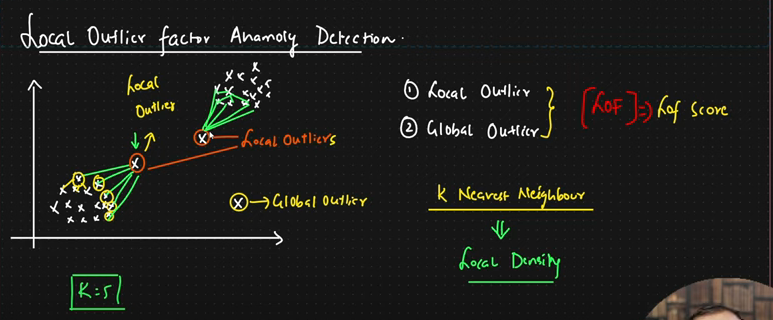 Local Outlier factor Anamoly Detection.
Local
Outlier
Local Outliers
Global Outlier
K=5
① Local Outlier
② Global Outlier
[LOF] => Lof Score
K Nearest Neighbour
Local Density